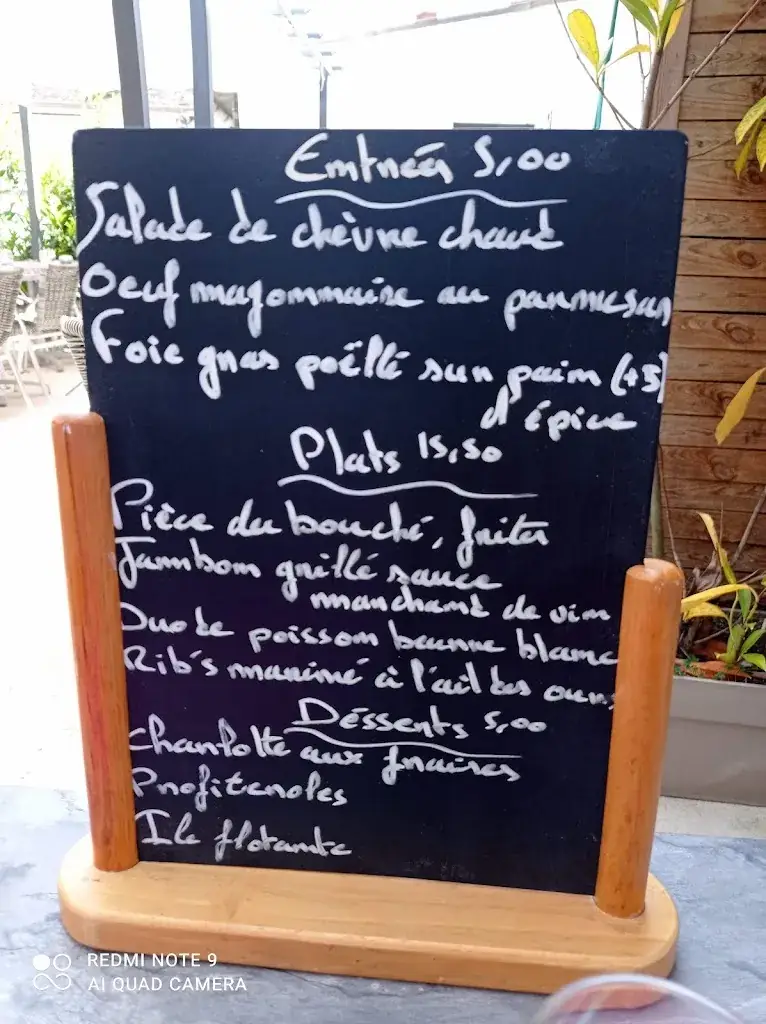 Entrées 5,00
Salade de chèvre chaud
Oeuf mayonnaise au parmesan
Foie gras poêllé sur pain (+5)
d'épice
Plats 15,50
Pièce du bouché, frites
Jambon grillé sauce
marchant de vin
Duo de poisson beurre blanc
Rib's mariné à l'ail des ours
Désserts 5,00
Charlotte aux fraises
Profiteroles
Ile flotante
REDMI NOTE 9
AI QUAD CAMERA